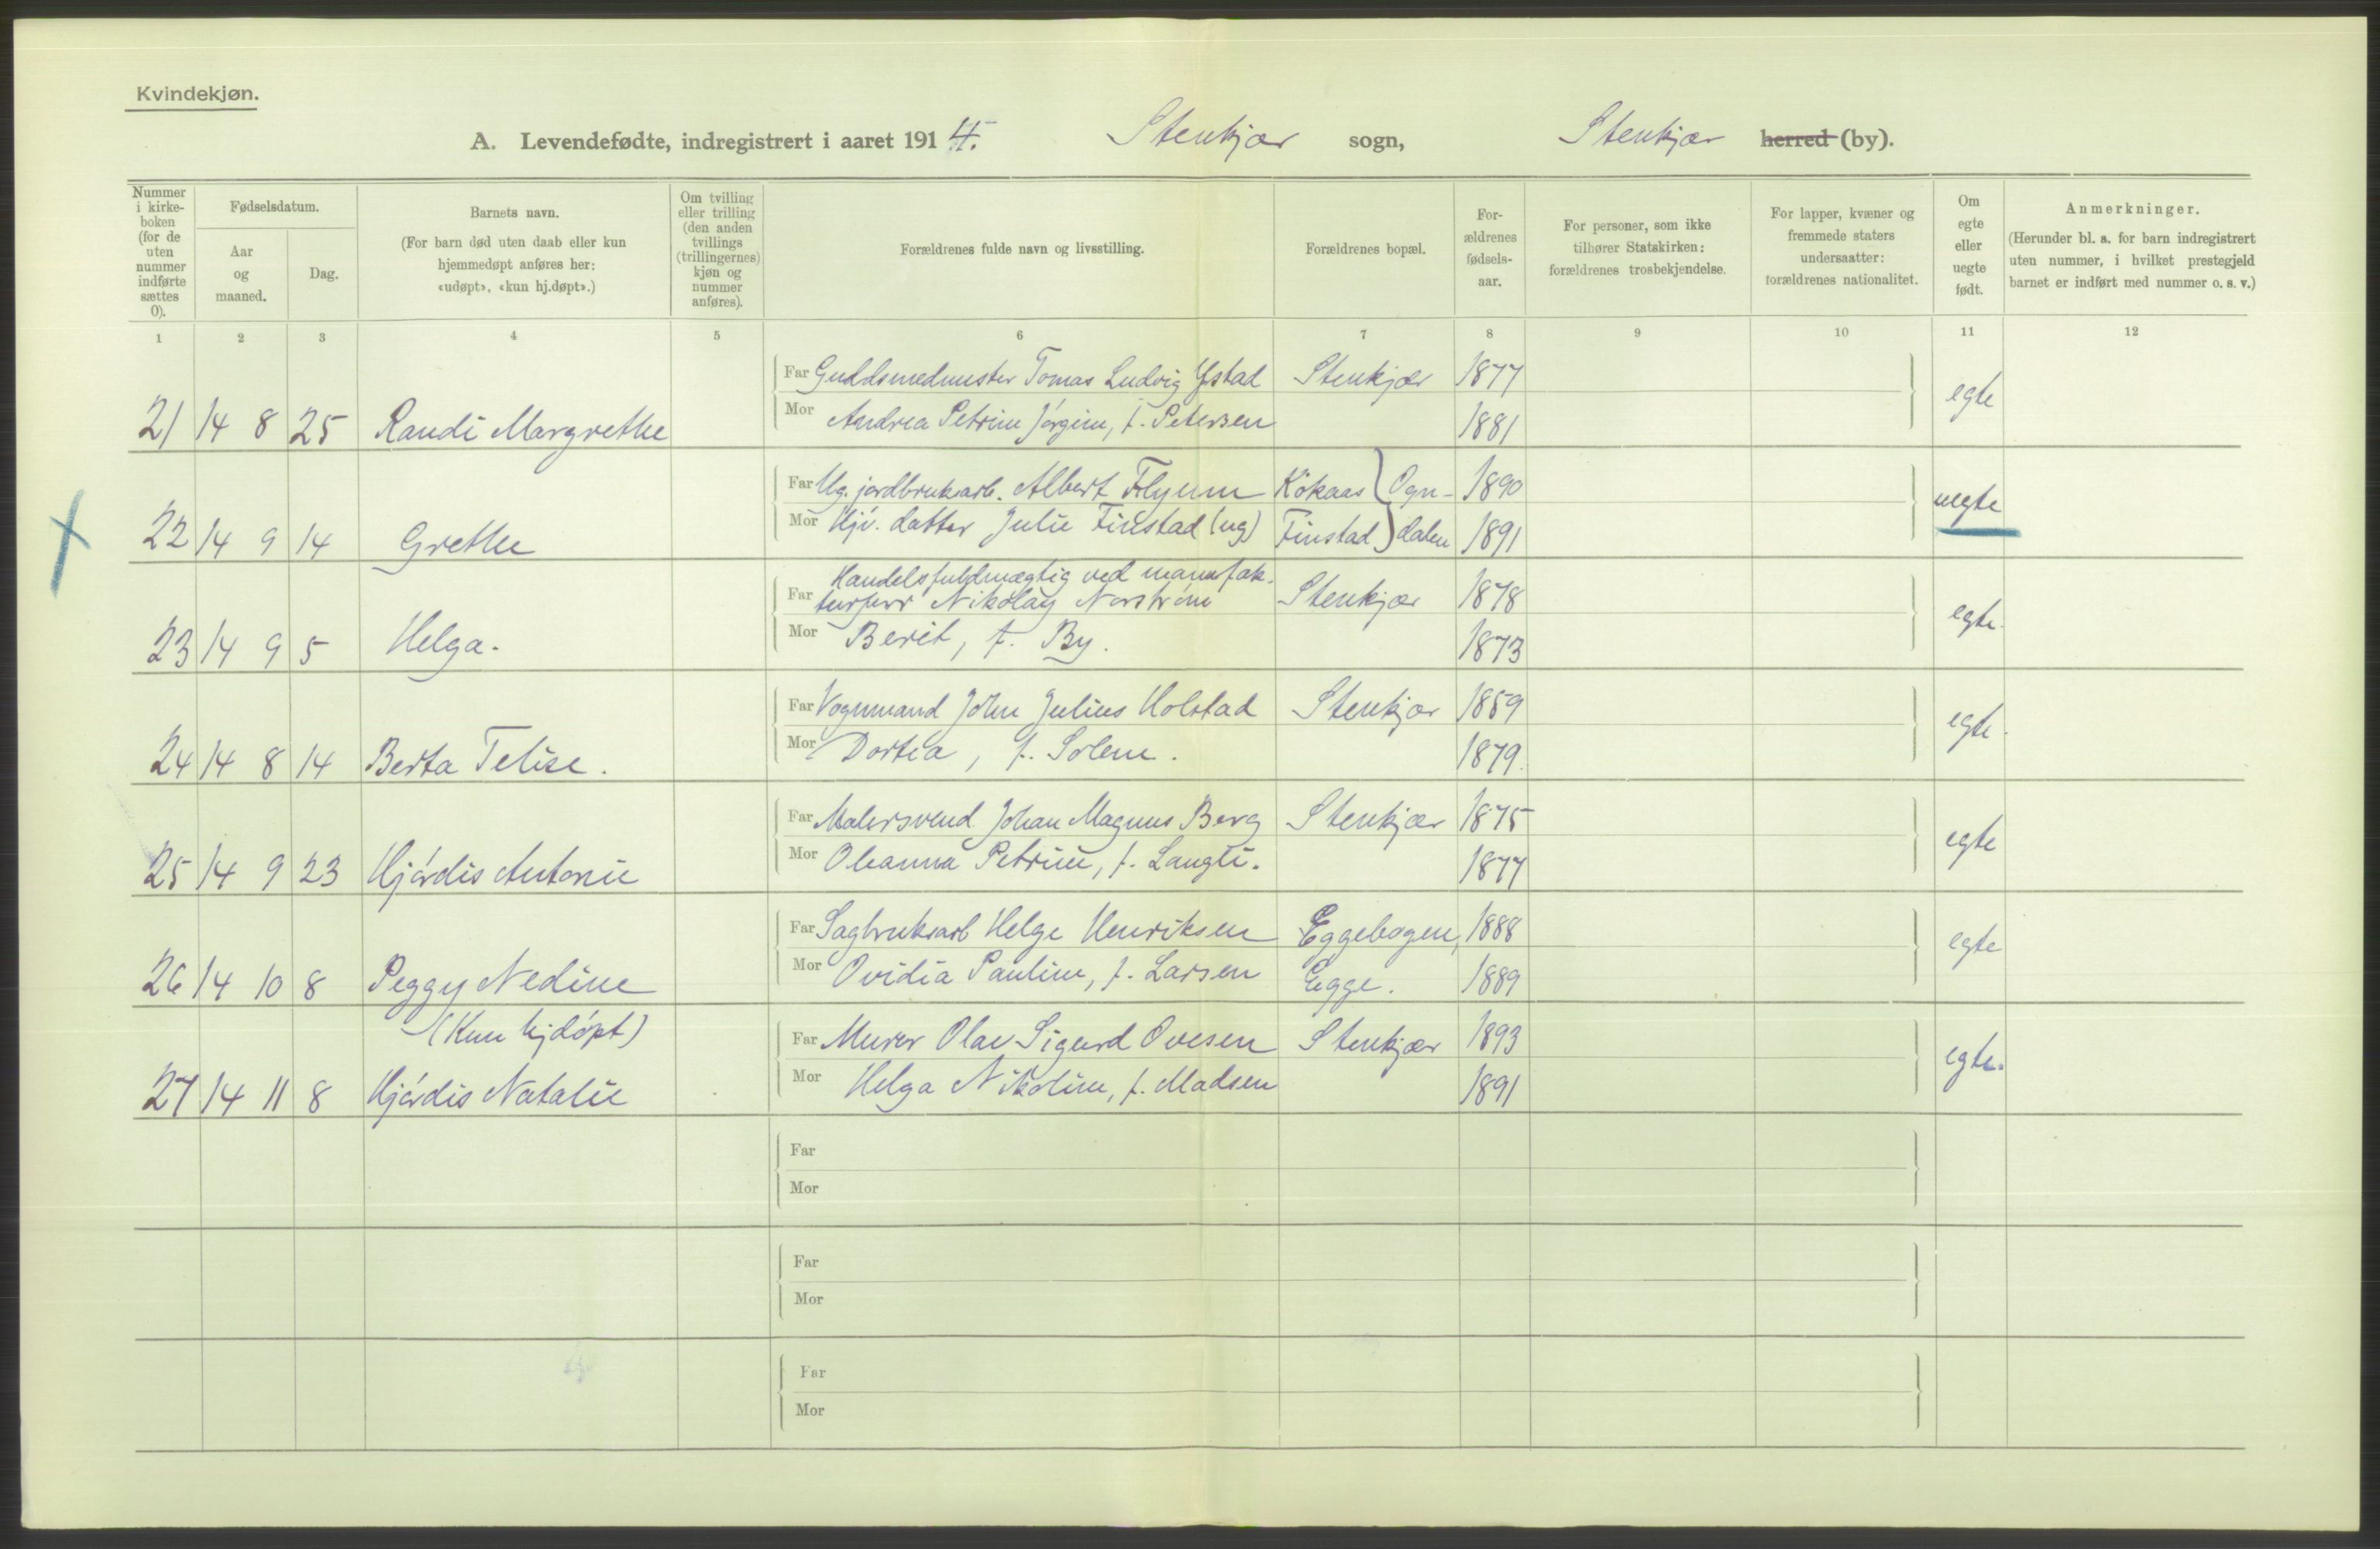 Kvindekjøn.
A. Levendefødte, indregistrert i aaret 1914. Stenkjær sogn, Stenkjær herred (by).
Nummer i kirke-boken (for de uten nummer indførte sættes 0).
Fødselsdatum.
Aar og maaned.
Dag.
Barnets navn.
(For barn død uten daab eller kun hjemmedøpt anføres her: «udøpt», «kun hj.døpt».)
Om tvilling eller trilling (den anden tvillings (trillingernes) kjøn og nummer anføres).
Forældrenes fulde navn og livsstilling.
Forældrenes bopæl.
For-ældrenes fødsels-aar.
For personer, som ikke tilhører Statskirken: forældrenes trosbekjendelse.
For lapper, kvæner og fremmede staters undersaatter: forældrenes nationalitet.
Om egte eller uegte født.
Anmerkninger.
(Herunder bl. a. for barn indregistrert uten nummer, i hvilket prestegjeld barnet er indført med nummer o. s. v.)
1 2 3 4 5 6 7 8 9 10 11 12
Far Guldsmedmester Tomas Ludvig Ystad Stenkjær 1877 egte
21 14 8 25 Randi Margrethe Mor Andrea Petrine Jørgine, f. Petersen 1881
Far Ug. jordbruksarb. Albert Flyum Kokaas } Ogn- 1890 uegte
22 14 9 14 Grethe Mor Hjv. datter Julie Finstad (ug) Finstad } dalen 1891
Handelsfuldmægtig ved manufak-
Far turforr Nikolay Norstrøm Stenkjær 1878 egte.
23 14 9 5 Helga. Mor Berit, f. By. 1873
Far Vognmand John Julius Holstad Stenkjær 1859 egte.
24 14 8 14 Berta Telise. Mor Dortea, f. Solem. 1879.
Far Malersvend Johan Magnus Berg Stenkjær 1875 egte
25 14 9 23 Hjørdis Antonie Mor Oleanna Petrine, f. Langli. 1877
Far Sagbruksarb Helge Henriksen Eggebogen, 1888 egte
26 14 10 8 Peggy Nedine Mor Ovidia Pauline, f. Larsen Egge. 1889
(Kun hjdøpt) Far Murer Olav Sigurd Ovesen Stenkjær 1893 egte.
27 14 11 8 Hjørdis Natalie Mor Helga Nikoline, f. Madsen 1891
Far
Mor
Far
Mor
Far
Mor